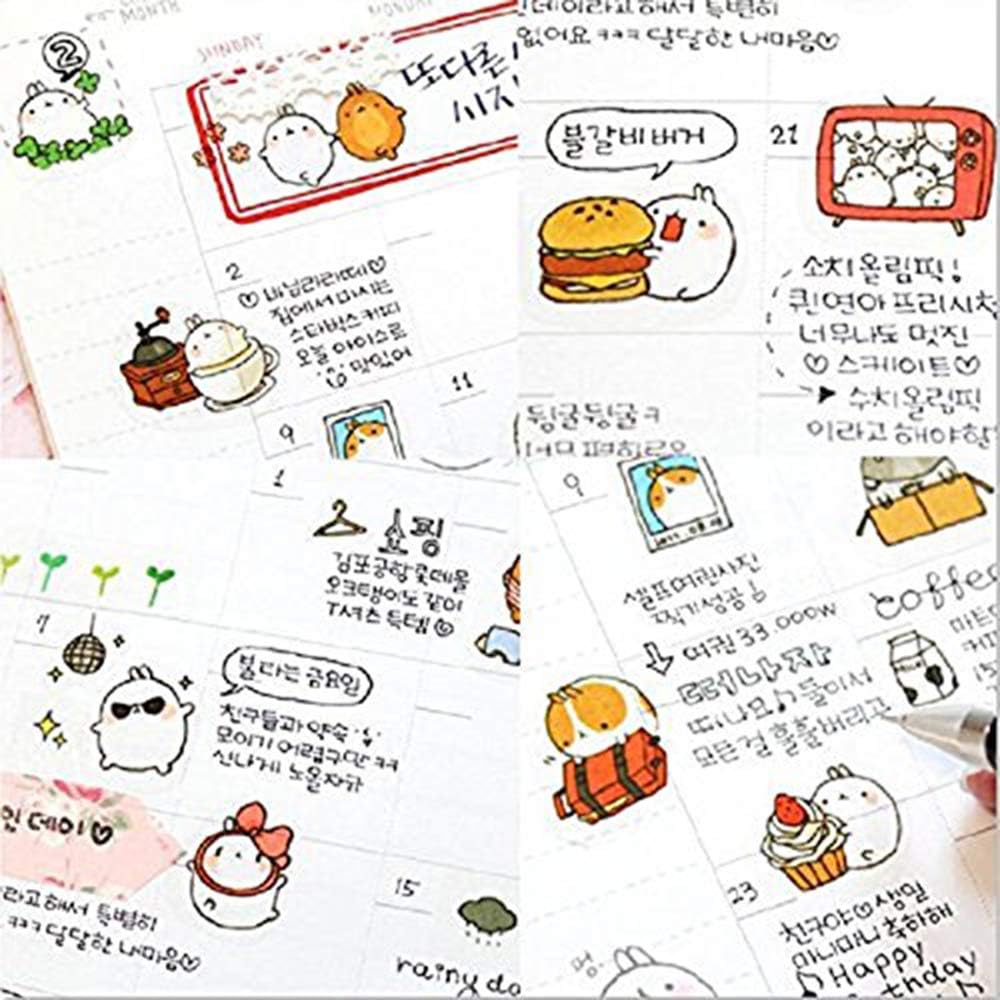 MONTH
MONDAY
SUNDAY
2
또다른
2
♡ 바닐라라떼♡
집에서 마시는
스타벅스커피
오늘 아이스로
맛있어
9
11
데이라고해서 특별히
없어요 ㅋㅋㅋ 달달한 내마음♡
불갈비버거
21
소치올림픽!
퀸연아 프리시청
너무나도 멋진
♡스케이트♡
수치올림픽
이라고 해야할
뒹굴뒹굴ㅋ
너무
1
쇼핑
김포공항롯데몰
오크탱이도 같이
T셔츠 득템♡
7
불타는 금요일
친구들과 약속
모이기 어렵구만 ㅋㅋ
신나게 노올자규
인데이♡
라고해서 특별히
ㅋㅋㅋ달달한 내마음♡
15
rainy da
9
셀프여권사진
찍기성공!
여권 33.000W
떠나자
떠나요♪둘이서
모든걸 훌훌버리고
coffee
마트
23
친구야♡생일
마니마니 축하해
♪Happy
thday♪
멍.